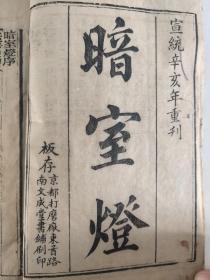 宣統辛亥年重刊
暗室燈
板存京都打磨廠東首路
南文成堂書鋪刷印
暗室燈序